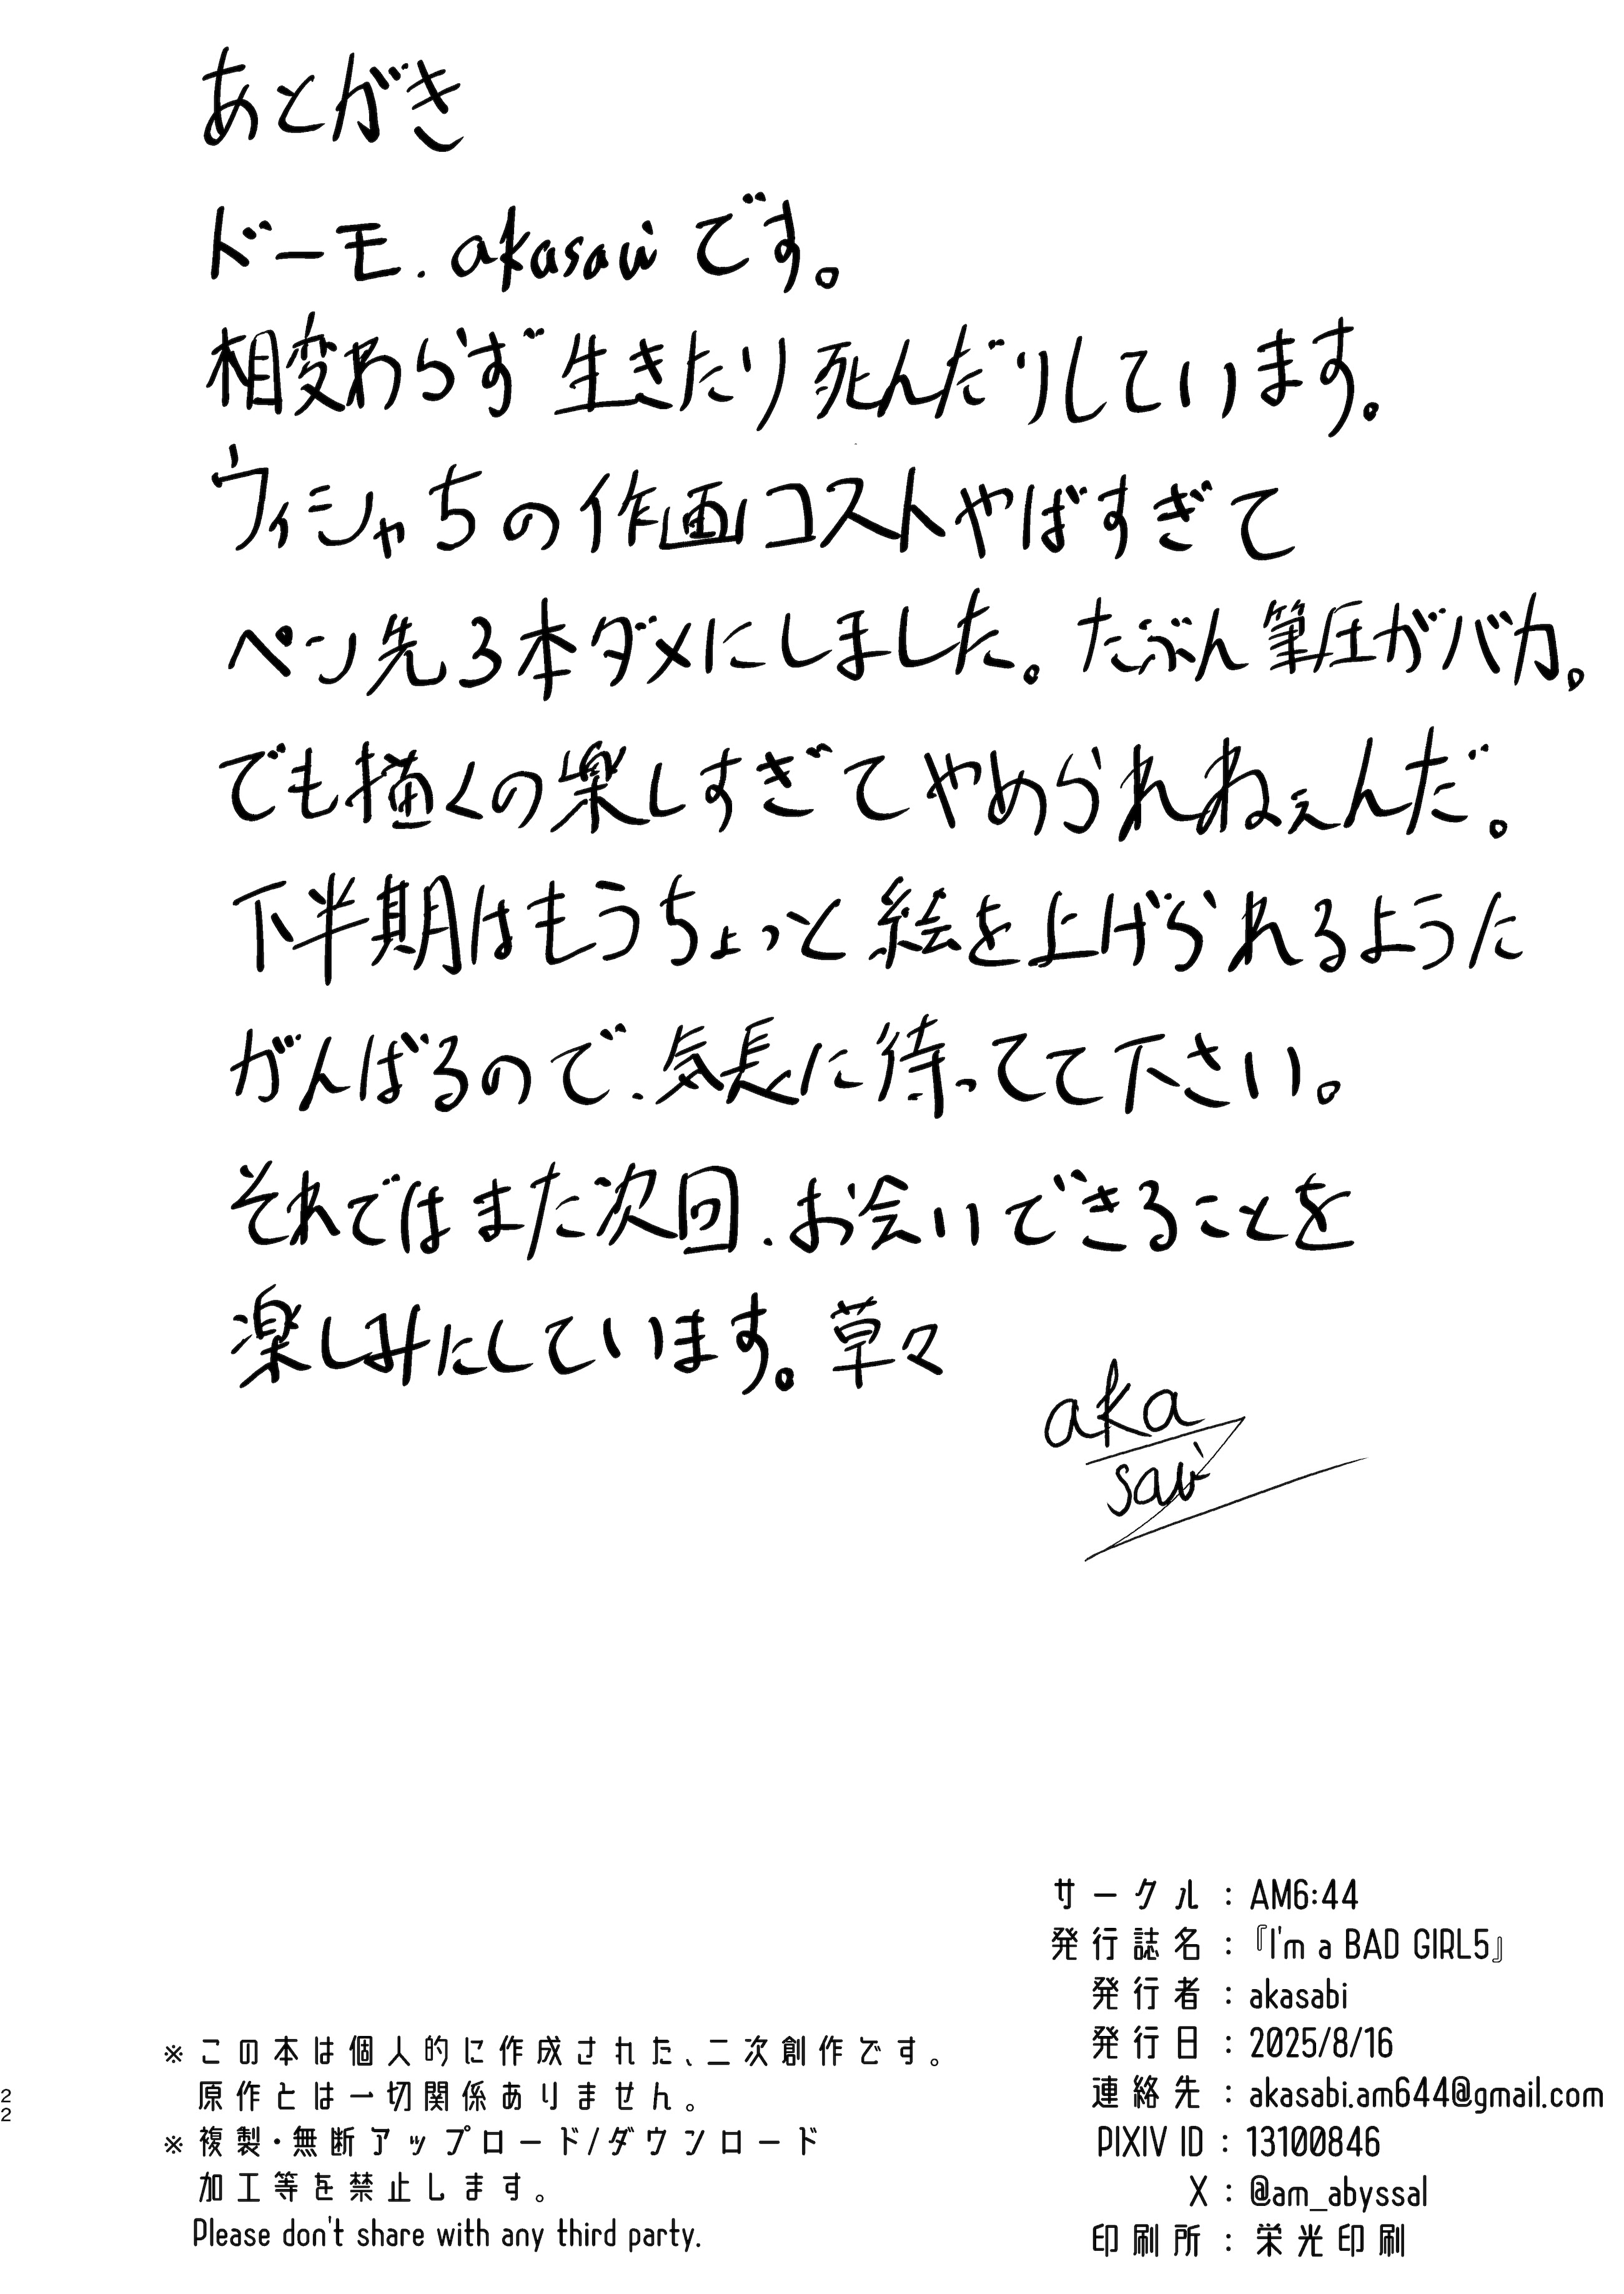 あとがき
ドーモ、akasaviです。
相変わらず生きたり死んだりしています。
ウィシャちの作画コストやばすぎて
ペン先3本ダメにしました。たぶん筆圧がバカ。
でも描くの楽しすぎてやめられねぇんだ。
下半期はもうちょっと絵を上げられるように
がんばるので、気長に待ってて下さい。
それではまた次回、お会いできることを
楽しみにしています。草々
aka
savi
サークル：AM6:44
発行誌名：『I'm a BAD GIRL5』
発行者：akasabi
発行日：2025/8/16
連絡先：akasabi.am644@gmail.com
PIXIV ID：13100846
X：@am_abyssal
印刷所：栄光印刷
※この本は個人的に作成された、二次創作です。
原作とは一切関係ありません。
※複製・無断アップロード/ダウンロード
加工等を禁止します。
Please don't share with any third party.
22